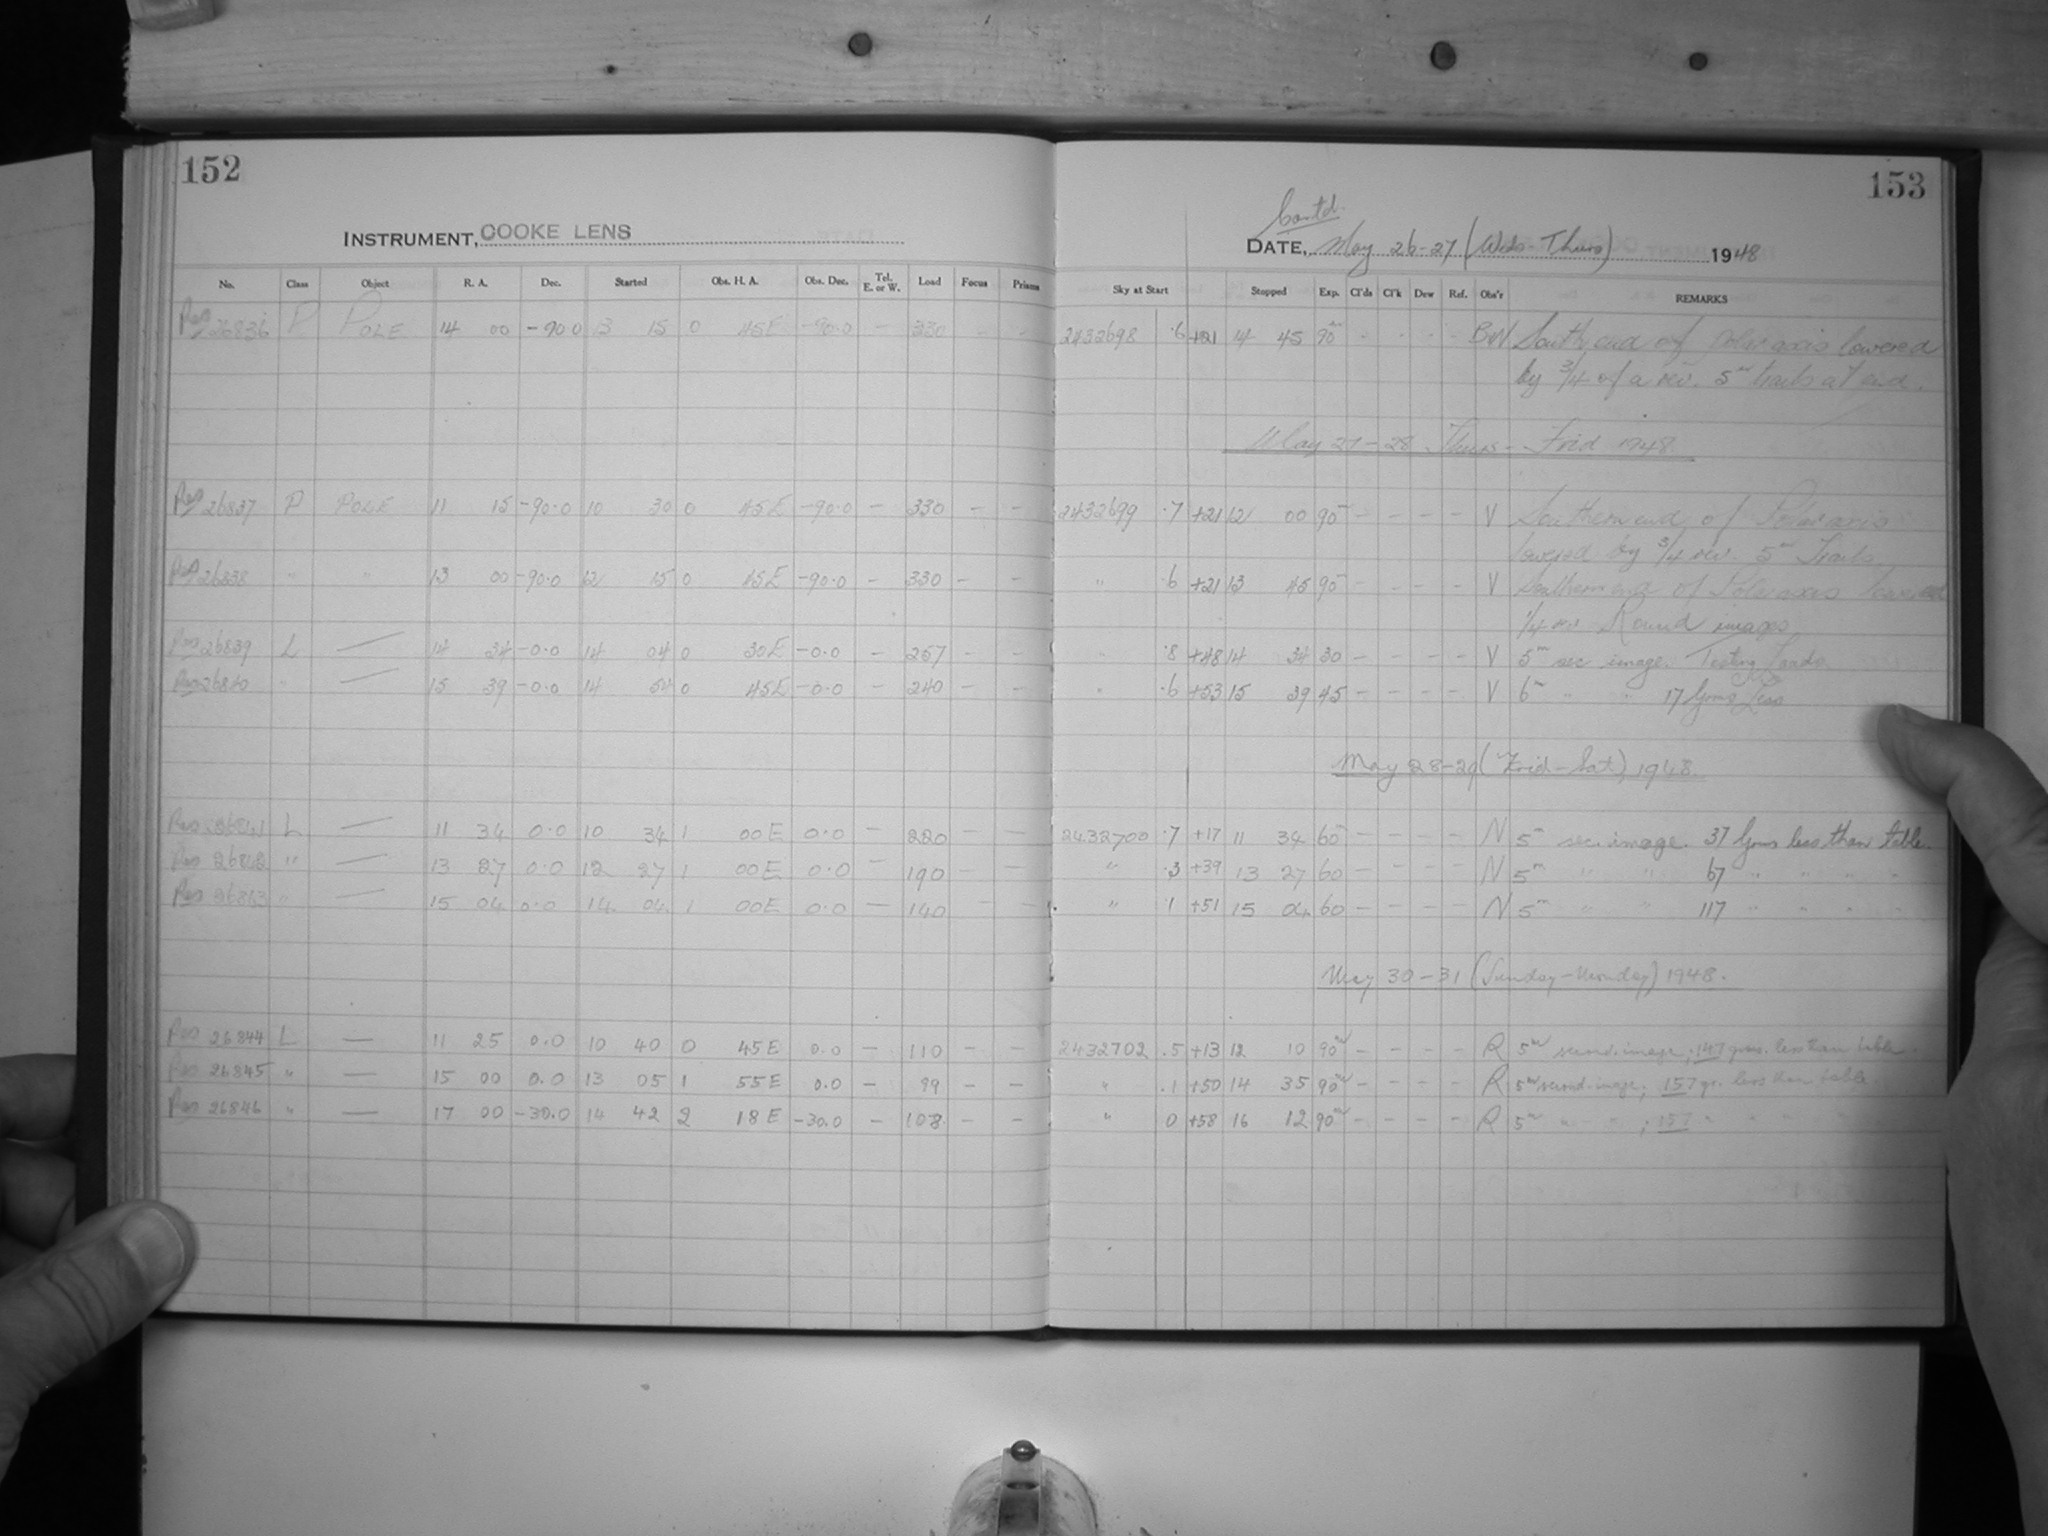 152
153
INSTRUMENT, COOKE LENS
Contd.
DATE, May 26-27 (Weds-Thurs) 1948
No. Class Object R. A. Dec. Started Obs. H. A. Obs. Dec. Tel. E. or W. Load Focus Prisms Sky at Start Stopped Exp. Cl'ds Cl'k Dew Ref. Obs'r REMARKS
26836 P POLE 14 00 -90.0 13 15 0 45E -90.0 - 330 - - 2432698 .6 +21 14 45 90m - - - - BW South end of polar axis lowered
by 3/4 of a rev. 5m trails at end.
May 27-28 Thurs - Frid 1948
26837 P POLE 11 15 -90.0 10 30 0 45E -90.0 - 330 - - 2432699 .7 +21 12 00 90m - - - - V Southern end of Polar axis
lowered by 3/4 rev. 5m Trails
26838 " " 13 00 -90.0 12 15 0 45E -90.0 - 330 - - " .6 +21 13 45 90m - - - - V Southern end of Polar axis
1/4 rev Round images
26839 L — 14 34 -0.0 14 04 0 30E -0.0 - 257 - - " .8 +48 14 34 30 - - - - V 5m sec image. Testing Loads
26840 " — 15 39 -0.0 14 54 0 45E -0.0 - 240 - - " .6 +53 15 39 45 - - - - V 6m " " 17 Gms Less
May 28-29 (Frid-Sat) 1948
26841 L — 11 34 0.0 10 34 1 00E 0.0 - 220 - - 2432700 .7 +17 11 34 60m - - - - N 5m sec. image. 37 Gms less than table.
26842 " — 13 27 0.0 12 27 1 00E 0.0 - 190 - - " .3 +39 13 27 60 - - - - N 5m " " 67 " " " "
26843 " — 15 04 0.0 14 04 1 00E 0.0 - 140 - - " .1 +51 15 04 60 - - - - N 5m " " 117 " " " "
May 30-31 (Sunday-Monday) 1948.
26844 L — 11 25 0.0 10 40 0 45E 0.0 - 110 - - 2432702 .5 +13 12 10 90m - - - - R 5m second-image; 147 gms. less than table.
26845 " — 15 00 0.0 13 05 1 55E 0.0 - 99 - - " .1 +50 14 35 90m - - - - R 5m second-image; 157 gr. less than table.
26846 " — 17 00 -30.0 14 42 2 18E -30.0 - 108 - - " 0 +58 16 12 90m - - - - R 5m " " ; 157 " " " "